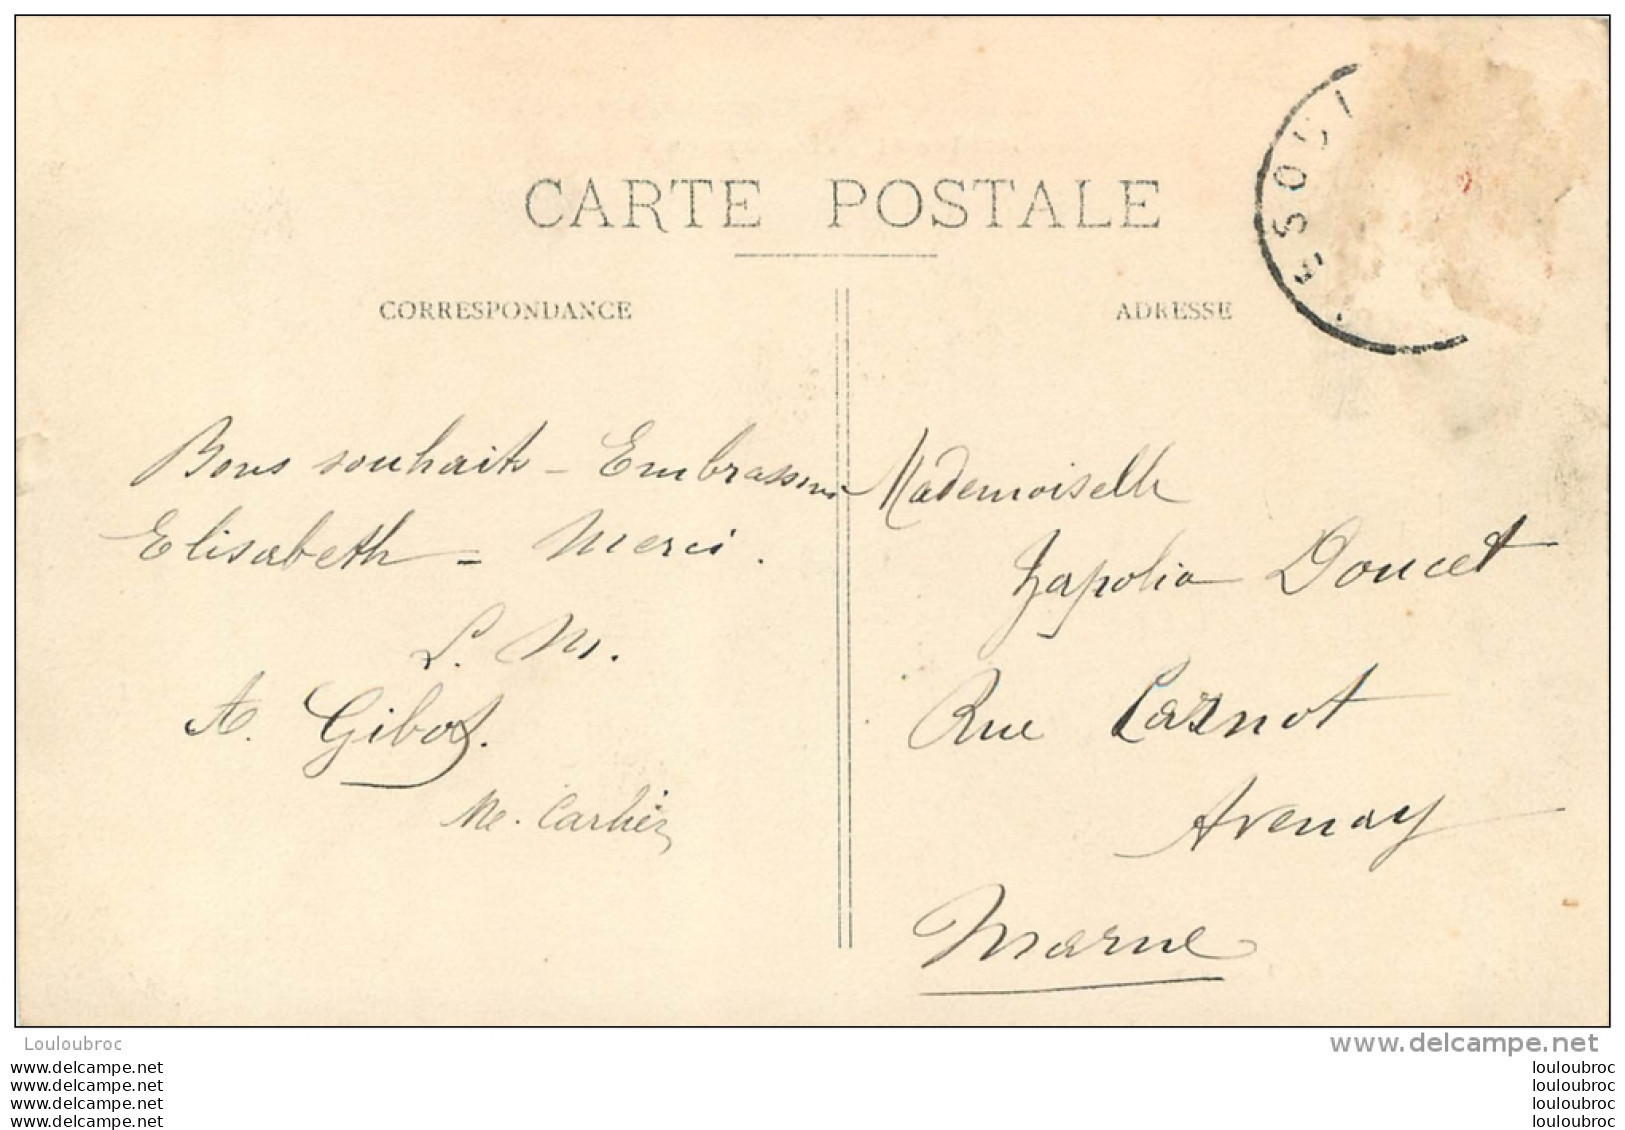 CARTE POSTALE
CORRESPONDANCE
ADRESSE
Bons souhaits - Embrassons
Elisabeth - Merci.
L. M.
A. Gibot.
Me. Carlier
Mademoiselle
Zapolia Doucet
Rue Carnot
Avenay
Marne
Louloubroc
www.delcampe.net
www.delcampe.net
www.delcampe.net
www.delcampe.net
www.delcampe.net
louloubroc
louloubroc
louloubroc
louloubroc